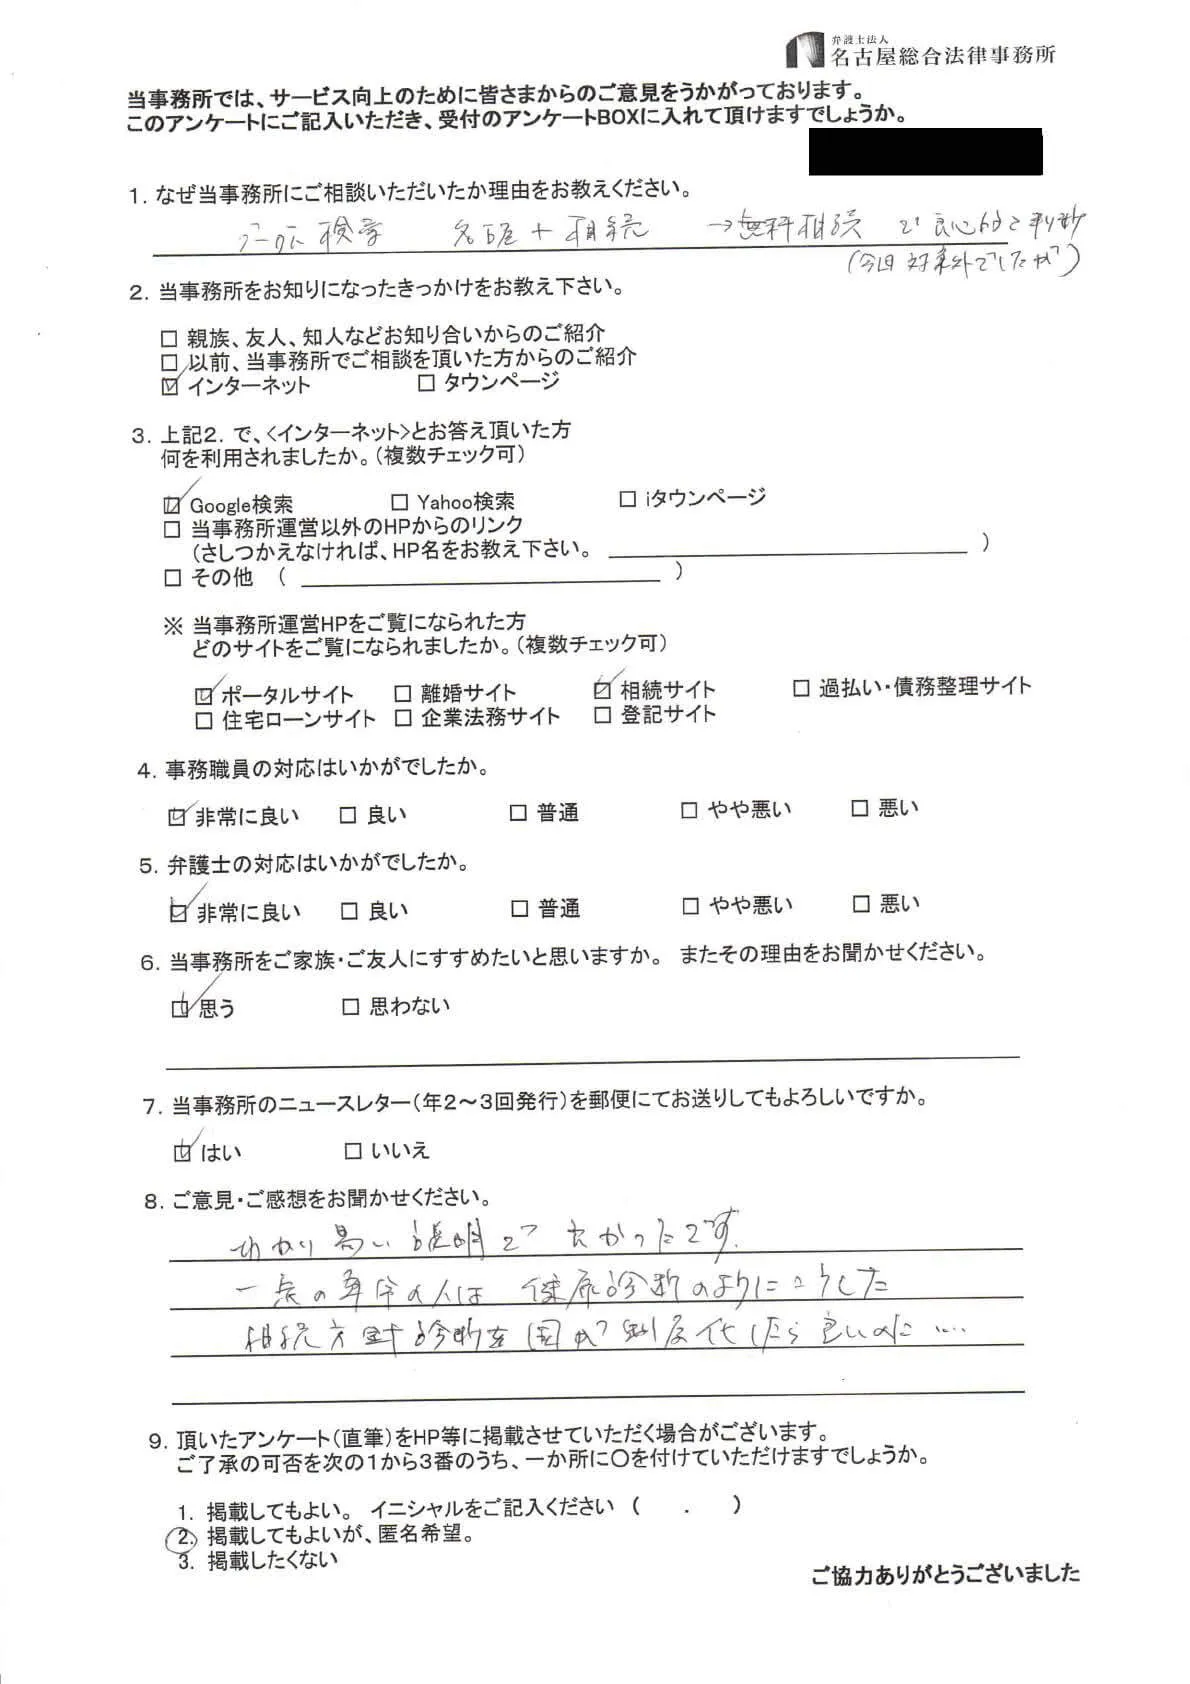 弁護士法人
名古屋総合法律事務所
当事務所では、サービス向上のために皆さまからのご意見をうかがっております。
このアンケートにご記入いただき、受付のアンケートBOXに入れて頂けますでしょうか。
1. なぜ当事務所にご相談いただいたか理由をお教えください。
検索 名古屋+相続 →無料相談 で良心的と判断
(今回対象外でしたが)
2. 当事務所をお知りになったきっかけをお教え下さい。
□ 親族、友人、知人などお知り合いからのご紹介
□ 以前、当事務所でご相談を頂いた方からのご紹介
☑ インターネット □ タウンページ
3. 上記2. で、<インターネット>とお答え頂いた方
何を利用されましたか。(複数チェック可)
☑ Google検索 □ Yahoo検索 □ iタウンページ
□ 当事務所運営以外のHPからのリンク
(さしつかえなければ、HP名をお教え下さい。 )
□ その他 ( )
※ 当事務所運営HPをご覧になられた方
どのサイトをご覧になられましたか。(複数チェック可)
☑ ポータルサイト □ 離婚サイト ☑ 相続サイト □ 過払い・債務整理サイト
□ 住宅ローンサイト □ 企業法務サイト □ 登記サイト
4. 事務職員の対応はいかがでしたか。
☑ 非常に良い □ 良い □ 普通 □ やや悪い □ 悪い
5. 弁護士の対応はいかがでしたか。
☑ 非常に良い □ 良い □ 普通 □ やや悪い □ 悪い
6. 当事務所をご家族・ご友人にすすめたいと思いますか。 またその理由をお聞かせください。
☑ 思う □ 思わない
7. 当事務所のニュースレター(年2~3回発行)を郵便にてお送りしてもよろしいですか。
☑ はい □ いいえ
8. ご意見・ご感想をお聞かせください。
分かり易い説明で良かったです。
一定の年令の人は 健康診断のようにこうした
相続方針診断を国が制度化したら良いのに……
9. 頂いたアンケート(直筆)をHP等に掲載させていただく場合がございます。
ご了承の可否を次の1から3番のうち、一か所に〇を付けていただけますでしょうか。
1. 掲載してもよい。 イニシャルをご記入ください ( . )
2. 掲載してもよいが、匿名希望。
3. 掲載したくない
ご協力ありがとうございました